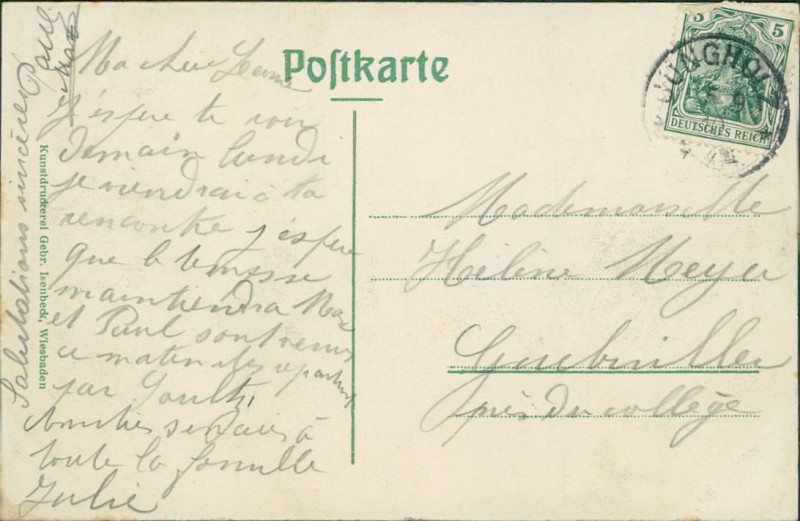 Postkarte
Ma chère
J'espère te voir
demain lundi
je viendrai à ta
rencontre j'espère
que le temps se
maintiendra Max
et Paul sont venus
ce matin ils
par Soultz,
Amitiés sincères à
toute la famille
Julie
Salutations sincères Paul
Max
Kunstdruckerei Gebr. Isenbeck, Wiesbaden
5 5
DEUTSCHES REICH
JUNGHOLZ
Mademoiselle
Hélène Meyer
Guebwiller
près du collège